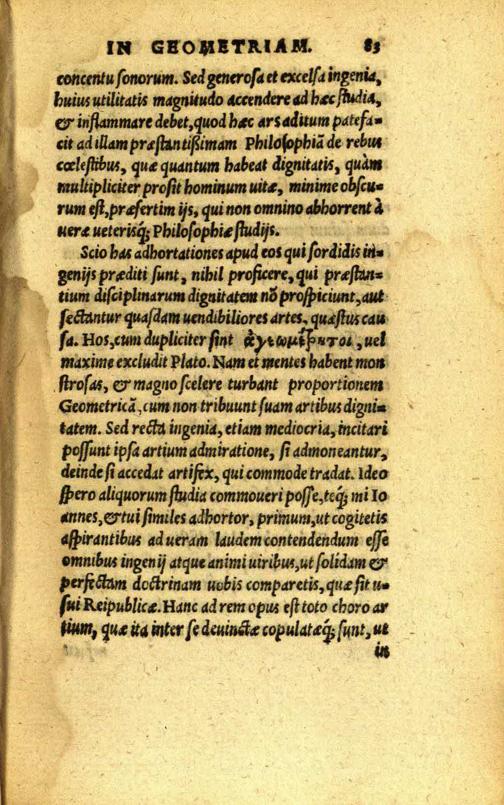 IN GEOMETRIAM. 83
concentu ſonorum. Sed generoſa et excelſa ingenia,
huius utilitatis magnitudo accendere ad hæc ſtudia,
& inflammare debet, quod hæc ars aditum patefa=
cit ad illam præſtantißimam Philoſophiā de rebus
cœleſtibus, quæ quantum habeat dignitatis, quàm
multipliciter proſit hominum uitæ, minime obſcu=
rum eſt, præſertim ijs, qui non omnino abhorrent à
ueræ ueterisq; Philoſophiæ ſtudijs.
Scio has adhortationes apud eos qui ſordidis in=
genijs præditi ſunt, nihil proficere, qui præſtan=
tium diſciplinarum dignitatem nō proſpiciunt, aut
ſectantur quaſdam uendibiliores artes, quæſtus cau
ſa. Hos, cum dupliciter ſint ἀγεωμέτρητοι, uel
maxime excludit Plato. Nam et mentes habent mon
ſtroſas, & magno ſcelere turbant proportionem
Geometricā, cum non tribuunt ſuam artibus digni=
tatem. Sed recta ingenia, etiam mediocria, incitari
poſſunt ipſa artium admiratione, ſi admoneantur,
deinde ſi accedat artifex, qui commode tradat. Ideo
ſpero aliquorum ſtudia commoueri poſſe, teq; mi Io
annes, & tui ſimiles adhortor, primum, ut cogitetis
aſpirantibus ad ueram laudem contendendum eſſe
omnibus ingenij atque animi uiribus, ut ſolidam &
perfectam doctrinam uobis comparetis, quæ ſit u=
ſui Reipublicæ. Hanc ad rem opus eſt toto choro ar
tium, quæ ita inter ſe deuinctæ copulatæq; ſunt, ut
in